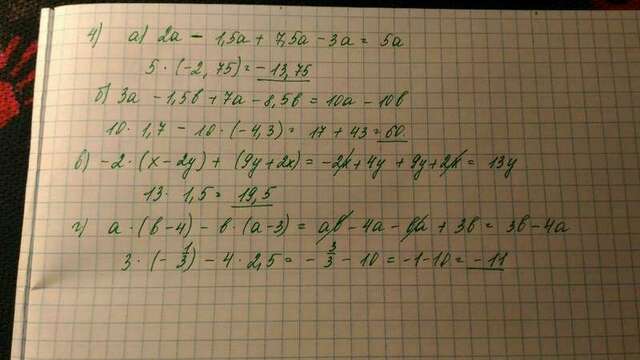 4) а) 2a - 1,5a + 7,5a - 3a = 5a
5 · (-2,75) = -13,75
б) 3a - 1,5b + 7a - 8,5b = 10a - 10b
10 · 1,7 - 10 · (-4,3) = 17 + 43 = 60.
в) -2 · (x - 2y) + (9y + 2x) = -2x + 4y + 9y + 2x = 13y
13 · 1,5 = 19,5
г) a · (b - 4) - b · (a - 3) = ab - 4a - ba + 3b = 3b - 4a
3 · (-1/3) - 4 · 2,5 = -3/3 - 10 = -1 - 10 = -11